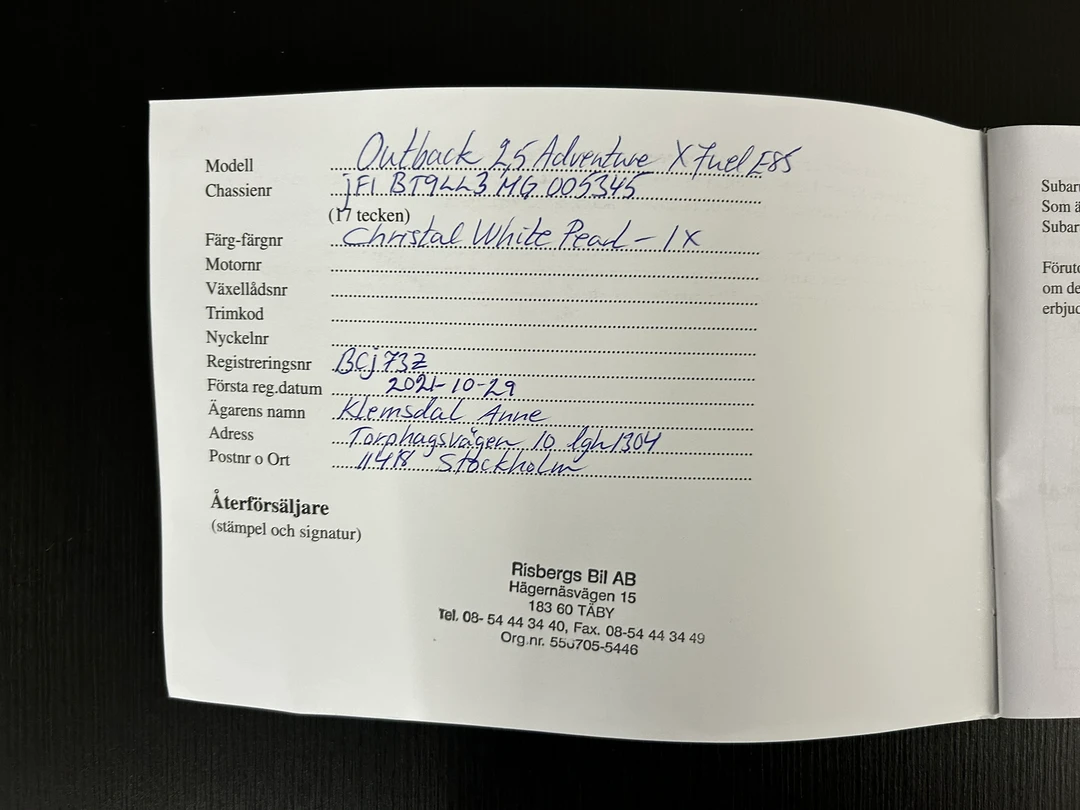 Modell Outback 2,5 Adventure X Fuel E85
Chassienr jF1 BT9LL3 MG 005345
(17 tecken)
Färg-färgnr Christal White Pearl - 1X
Motornr
Växellådsnr
Trimkod
Nyckelnr
Registreringsnr BCj73Z
Första reg.datum 2021-10-29
Ägarens namn Klemsdal Anne
Adress Torphagsvägen 10 lgh1304
Postnr o Ort 11418 Stockholm
Återförsäljare
(stämpel och signatur)
Risbergs Bil AB
Hägernäsvägen 15
183 60 TÄBY
Tel. 08- 54 44 34 40, Fax. 08-54 44 34 49
Org.nr. 550705-5446
Subaru
Som ä
Subar
Föruto
om de
erbjuc